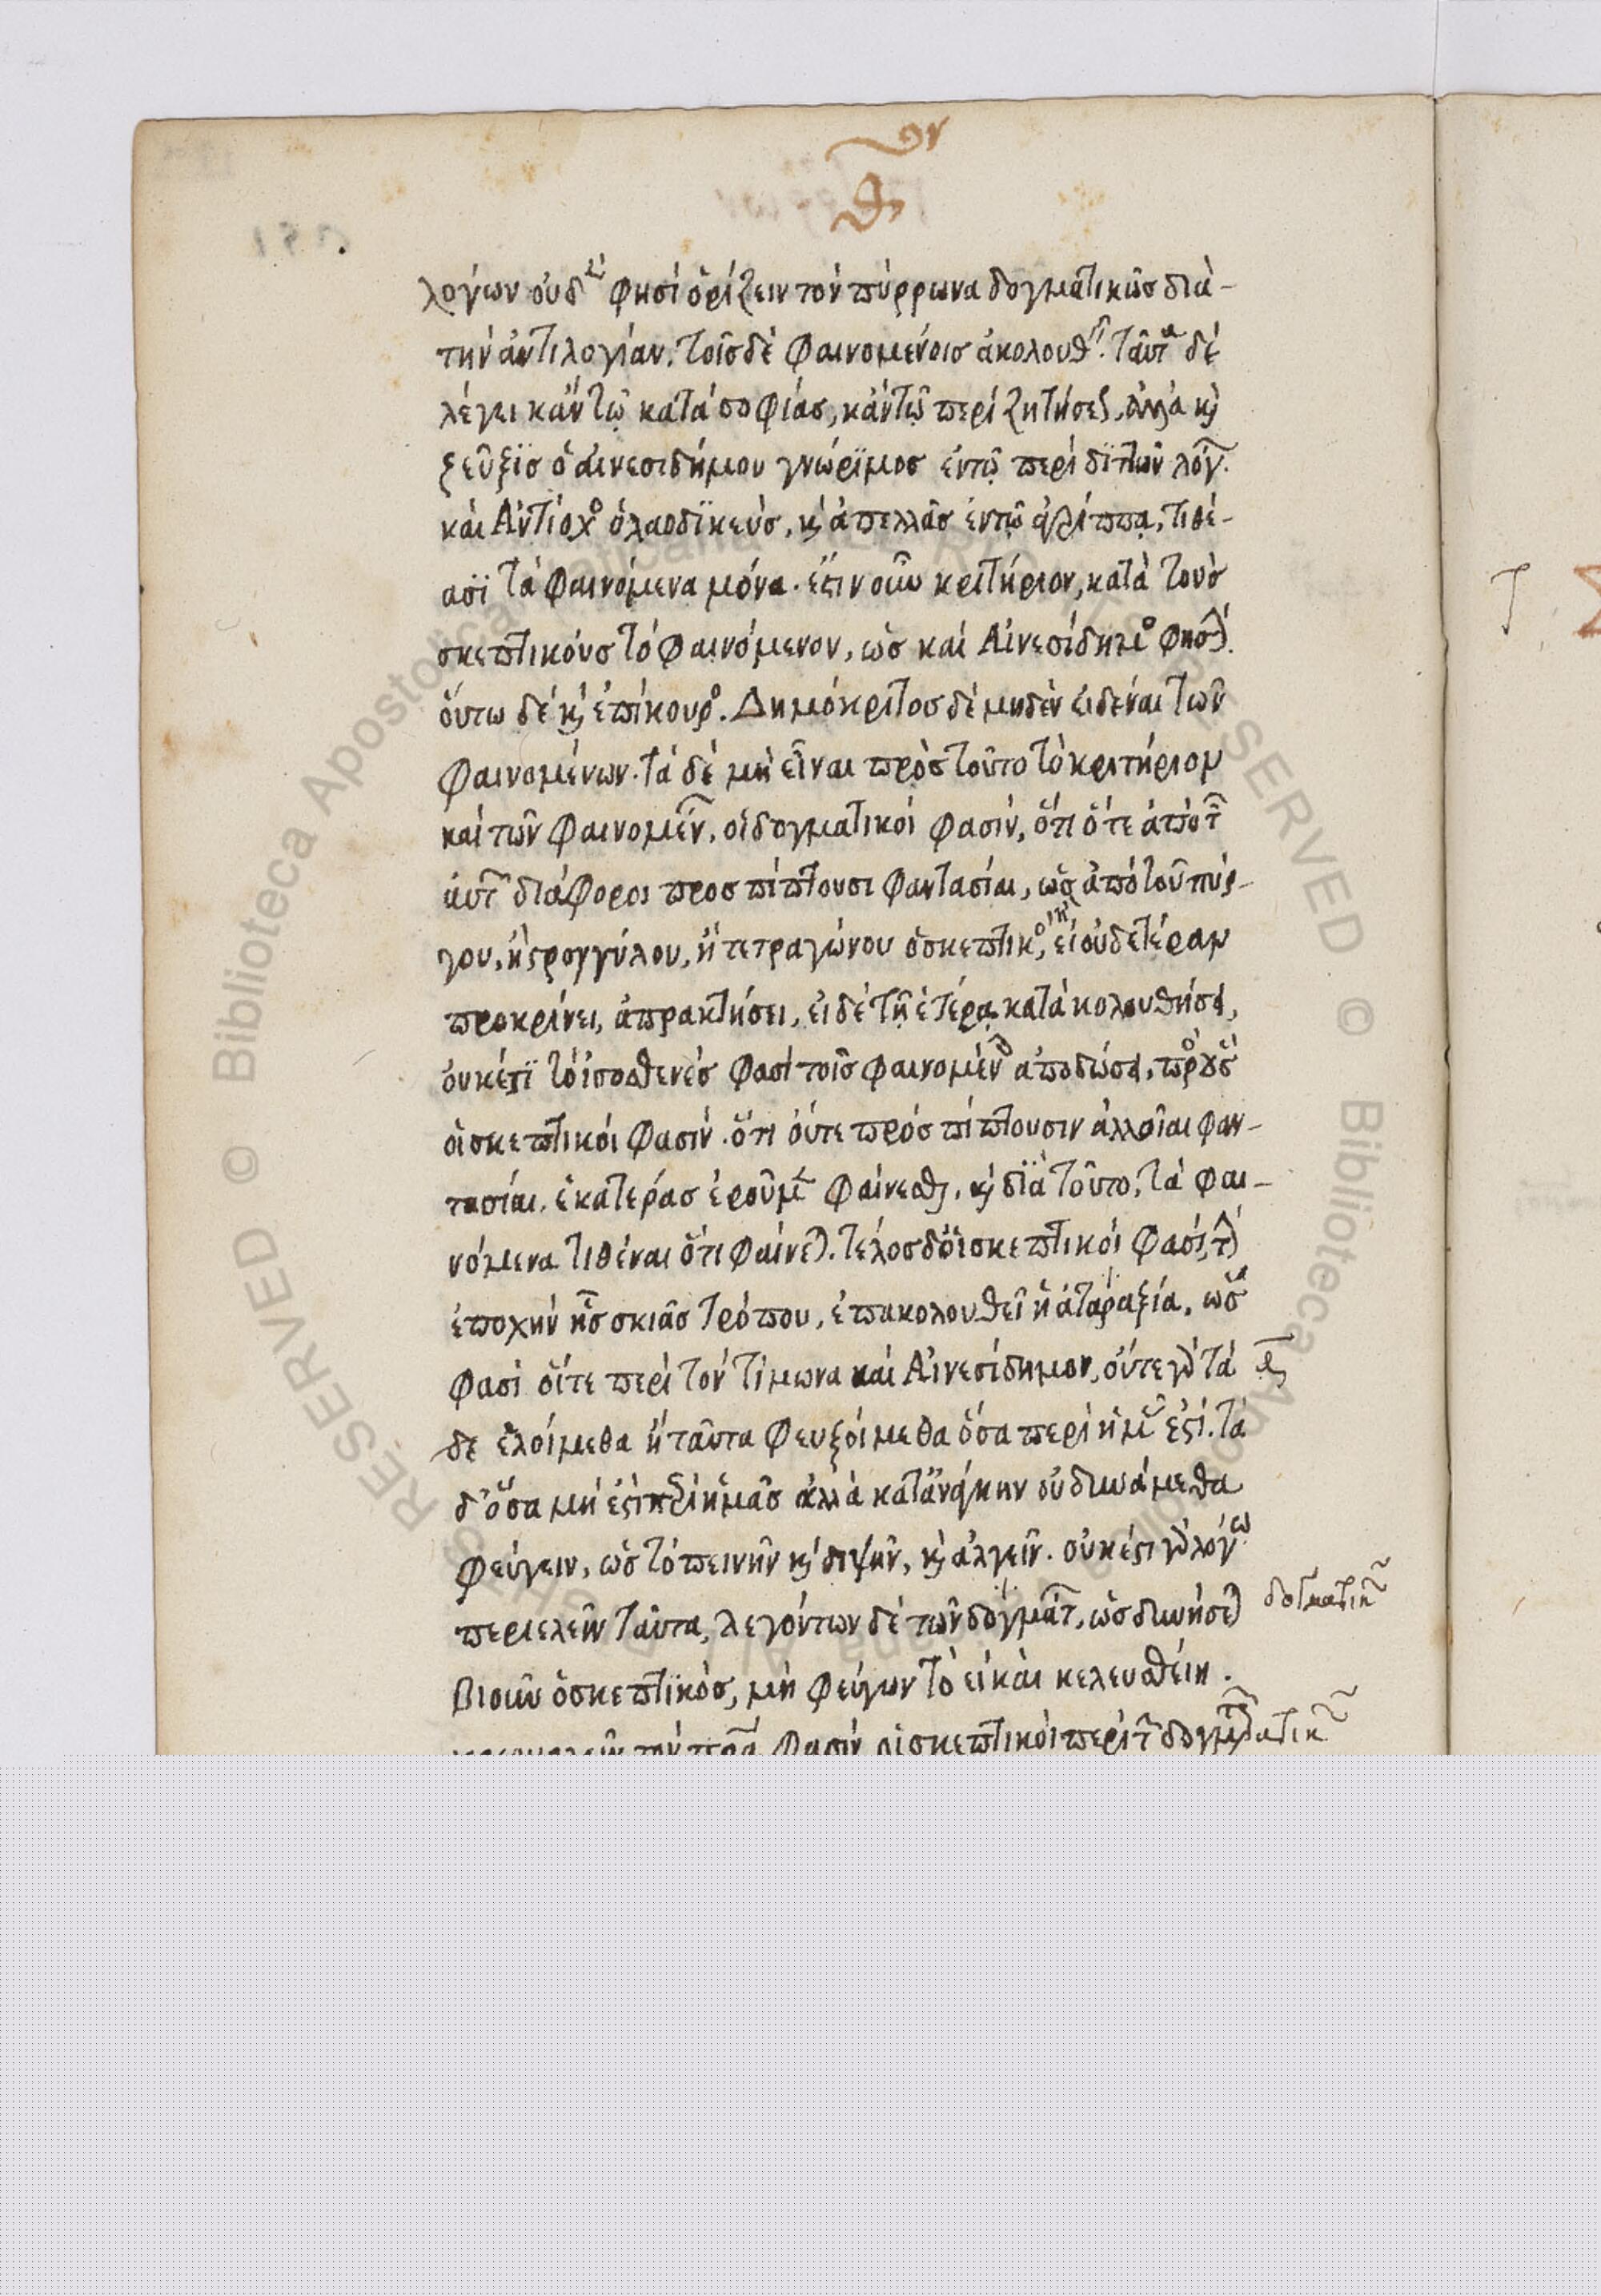 θʹ
λογίων οὐδέν φησί ὁρίζειν τὸν πύρρωνα δογματικῶς διὰ-
τὴν ἀντιλογίαν. τοῖς δὲ φαινομένοις ἀκολουθ. ταῦτα δὲ
λέγει κἀν τῷ κατὰ σοφίας, κἀν τῷ περὶ ζητήσε. ἀλλὰ κὶ
ξεῦξις ὁ αἰνεσιδήμου γνώριμος ἐν τῷ περὶ διττῶν λόγ.
καὶ Ἀντίοχο ὁ λαοδικεύς, κὶ ἀπελλᾶς ἐν τῷ ἀγρίππᾳ, τιθέ-
ασι τὰ φαινόμενα μόνα. ἔστιν οὖν κριτήριον, κατὰ τοὺς
σκεπτικοὺς τὸ φαινόμενον, ὡς καὶ Αἰνεσίδημο φησί.
οὕτω δὲ κὶ ἐπίκουρο. Δημόκριτος δὲ μηδὲν εἰδέναι τῶν
φαινομένων. τὰ δὲ μὴ εἶναι πρὸς τοῦτο τὸ κριτήριον
καὶ τῶν φαινομέν. οἱ δογματικοί φασίν, ὅτι ὅτε ἀπὸ τ
αὐτ διάφοροι προσπίπτουσι φαντασίαι, ὡς ἀπὸ τοῦ πύρ-
γου, ἢ στρογγύλου, ἢ τετραγώνου ὁ σκεπτικο, εἰ οὐδετέραν
προκρίνει, ἀπρακτήσει, εἰ δὲ τῇ ἑτέρᾳ κατακολουθήσει,
οὐκέτι τὸ ἰσοσθενές φασί τοῖς φαινομέν ἀποδώσει. πρὸ οὓς
οἱ σκεπτικοί φασίν. ὅτι οὔτε πρόσπίπτουσιν ἀλλοῖαι φαν-
τασίαι, ἑκατέρας ἐροῦμεν φαίνεσθαι, κὶ διὰ τοῦτο, τὰ φαι-
νόμενα τιθέναι ὅτι φαίνεται. τέλος δὲ οἱ σκεπτικοί φασί, τὴν
ἐποχὴν ἧς σκιᾶς τρόπον, ἐπακολουθεῖ ἡ ἀταραξία, ὥς
φασὶ οἵτε περὶ τὸν τίμωνα καὶ Αἰνεσίδημον, οὔτε γὰρ τά
δε ἑλοίμεθα ἢ ταῦτα φευξοίμεθα ὅσα περὶ ἡμ ἐστί. τὰ
δ' ὅσα μή ἐστι περὶ ἡμᾶς ἀλλὰ κατ' ἀνάγκην οὐ δυνάμεθα
φεύγειν, ὡς τὸ πεινῆν κὶ διψῆν, κὶ ἀλγεῖν. οὐκ ἔστι γὰρ λόγω
περιελεῖν ταῦτα, λεγόντων δὲ τῶν δογματ, ὡς δυνήσεται
δογματικ
βιοῦν ὁ σκεπτικός, μὴ φεύγων τὸ εἰ καὶ κελευσθείη.
φασὶν οἱ σκεπτικοὶ περὶ τ δογματικ